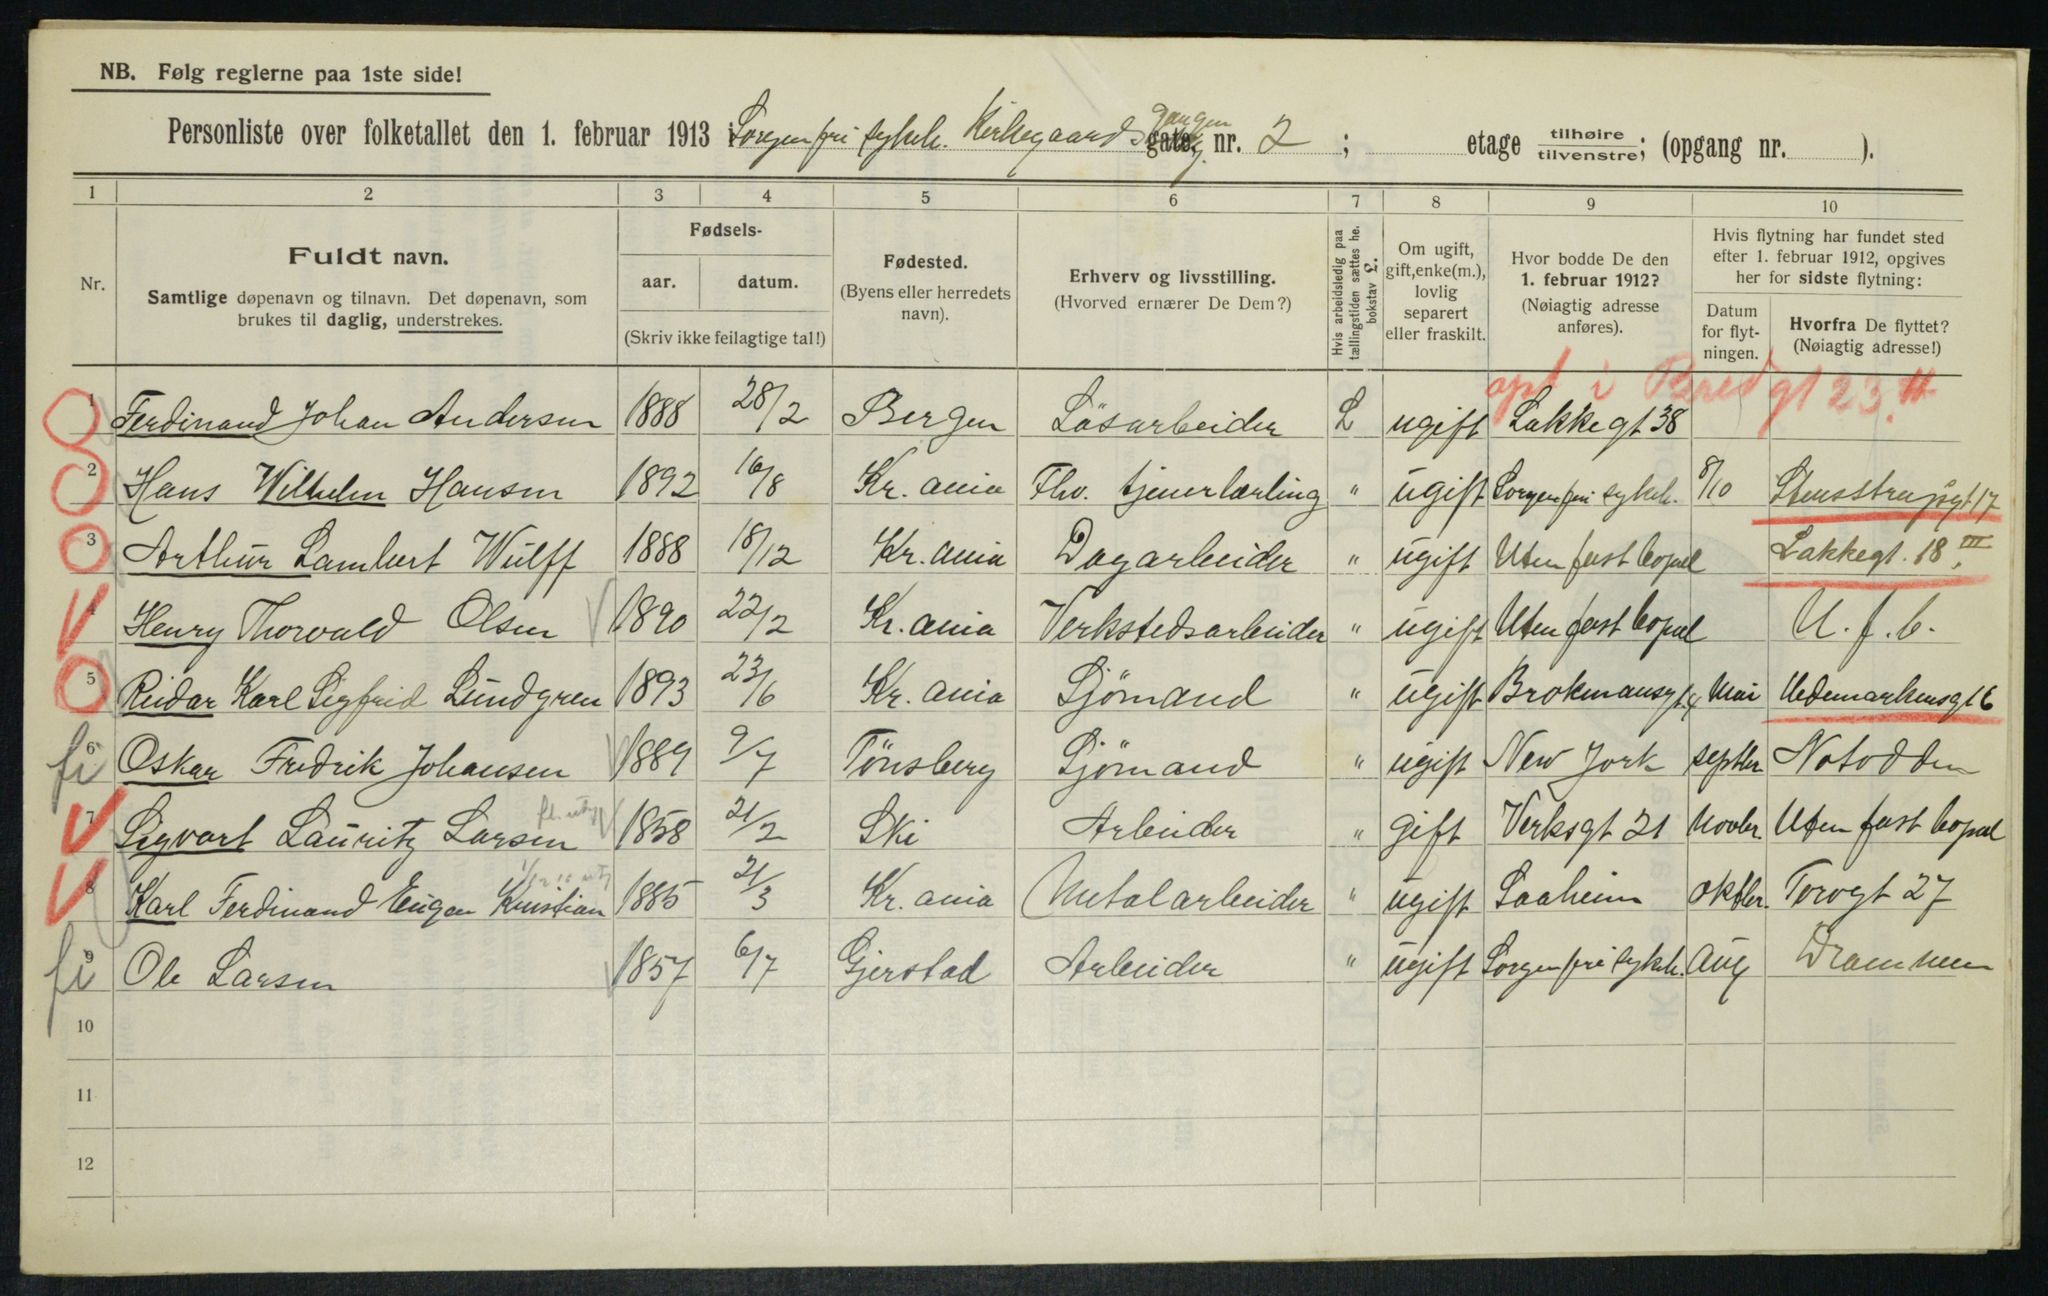 NB. Følg reglerne paa 1ste side!
Personliste over folketallet den 1. februar 1913 i Sorgenfri sykeh. Kirkegaardsgangen gate nr. 2; etage tilhøire/tilvenstre; (opgang nr. ).
1 2 3 4 5 6 7 8 9 10
Nr. Fuldt navn. Samtlige døpenavn og tilnavn. Det døpenavn, som brukes til daglig, understrekes. Fødsels- aar. datum. (Skriv ikke feilagtige tal!) Fødested. (Byens eller herredets navn). Erhverv og livsstilling. (Hvorved ernærer De Dem?) Hvis arbeidsledig paa tællingstiden sættes he. bokstav L. Om ugift, gift, enke(m.), lovlig separert eller fraskilt. Hvor bodde De den 1. februar 1912? (Nøiagtig adresse anføres). Hvis flytning har fundet sted efter 1. februar 1912, opgives her for sidste flytning: Datum for flytningen. Hvorfra De flyttet? (Nøiagtig adresse!)
opt i Bredgt 23. II
1 Ferdinand Johan Andersen 1888 28/2 Bergen Løsarbeider L ugift Lakkegt 38
2 Hans Wilhelm Hansen 1892 16/8 Kr. ania Fhv. tjenerlærling " ugift Sorgenfri sykeh. 8/10 Stensstrupsgt 17
3 Arthur Lambert Wulff 1888 18/12 Kr. ania Dagarbeider " ugift Uten fast bopæl Lakkegt. 18 III
4 Henry Thorvald Olsen 1890 22/2 Kr. ania Verkstedsarbeider " ugift Uten fast bopæl U. f. b.
5 Reidar Karl Sigfrid Lundgren 1893 23/6 Kr. ania Sjömand " ugift Brokmansgt 4 Mai Hedemarkensgt 6
fi 6 Oskar Fredrik Johansen 1889 9/7 Tönsberg Sjömand " ugift New York septbr Notodden
7 Sigvart Lauritz Larsen 1858 21/2 Ski Arbeider " gift Verksgt 21 Novbr. Uten fast bopæl
8 Karl Ferdinand Eugen Kristian 1885 21/3 Kr. ania Metalarbeider " ugift Saaheim oktbr. Torvgt 27
fi 9 Ole Larsen 1857 6/7 Gjerstad Arbeider " ugift Sorgenfri sykeh. Aug Drammen
10
11
12